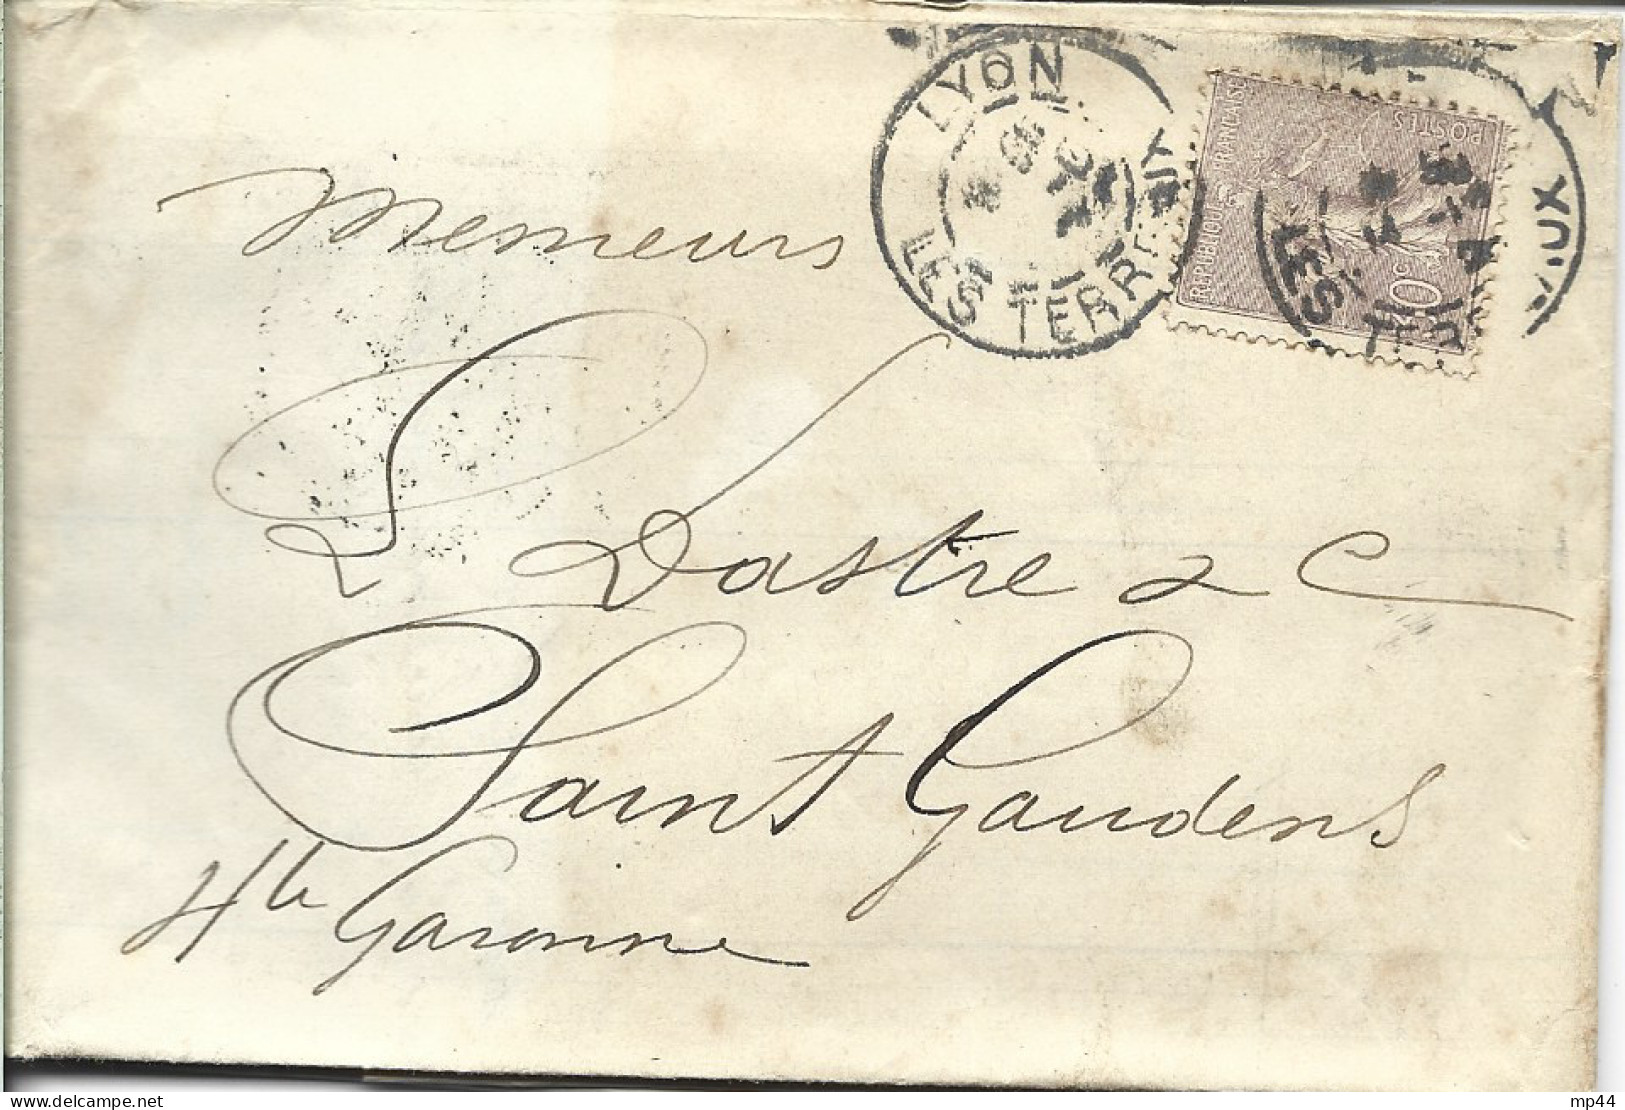 LYON
LES TERREAUX
REPUBLIQUE FRANCAISE
POSTES
LES TER
Messieurs
L Dastre & C
Saint Gaudens
Hte Garonne
delcampe.net
mp44